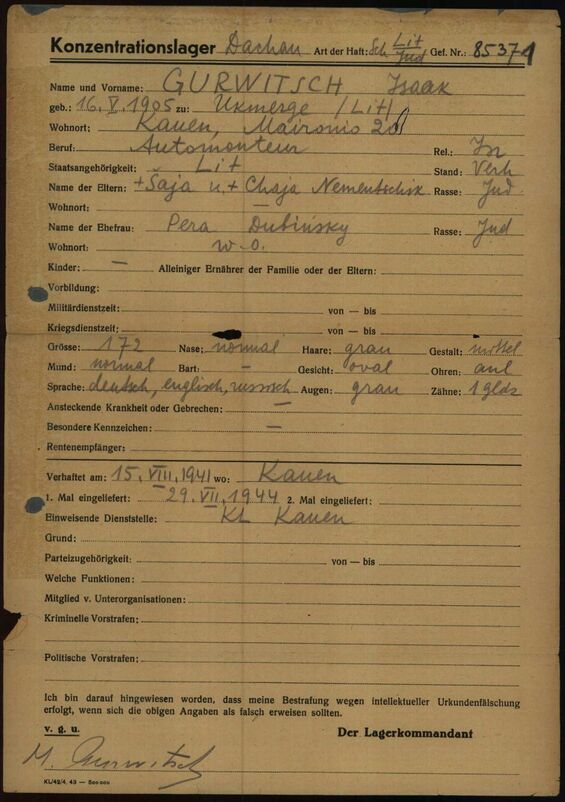 Konzentrationslager Dachau Art der Haft: Sch Lit Jud Gef. Nr.: 85374
Name und Vorname: GURWITSCH Isaak
geb.: 16. V. 1905 zu: Ukmerge (Lit)
Wohnort: Kauen, Maironio 20
Beruf: Automonteur Rel.: Isr
Staatsangehörigkeit: Lit Stand: Verh
Name der Eltern: + Šaja u. + Chaja Nementschik Rasse: Jud
Wohnort: —
Name der Ehefrau: Pera Dubinsky Rasse: Jud
Wohnort: w. o.
Kinder: — Alleiniger Ernährer der Familie oder der Eltern:
Vorbildung:
Militärdienstzeit: von — bis
Kriegsdienstzeit: von — bis
Grösse: 172 Nase: normal Haare: grau Gestalt: mittel
Mund: normal Bart: — Gesicht: oval Ohren: anl
Sprache: deutsch, englisch, russisch Augen: grau Zähne: 1
Ansteckende Krankheit oder Gebrechen: —
Besondere Kennzeichen: —
Rentenempfänger:
Verhaftet am: 15. VIII. 1941 wo: Kauen
1. Mal eingeliefert: 29. VII. 1944 2. Mal eingeliefert:
Einweisende Dienststelle: KL Kauen
Grund:
Parteizugehörigkeit: von — bis
Welche Funktionen:
Mitglied v. Unterorganisationen:
Kriminelle Vorstrafen:
Politische Vorstrafen:
Ich bin darauf hingewiesen worden, dass meine Bestrafung wegen intellektueller Urkundenfälschung
erfolgt, wenn sich die obigen Angaben als falsch erweisen sollten.
v. g. u. Der Lagerkommandant
Gurwitsch
KL/42/4. 43 —